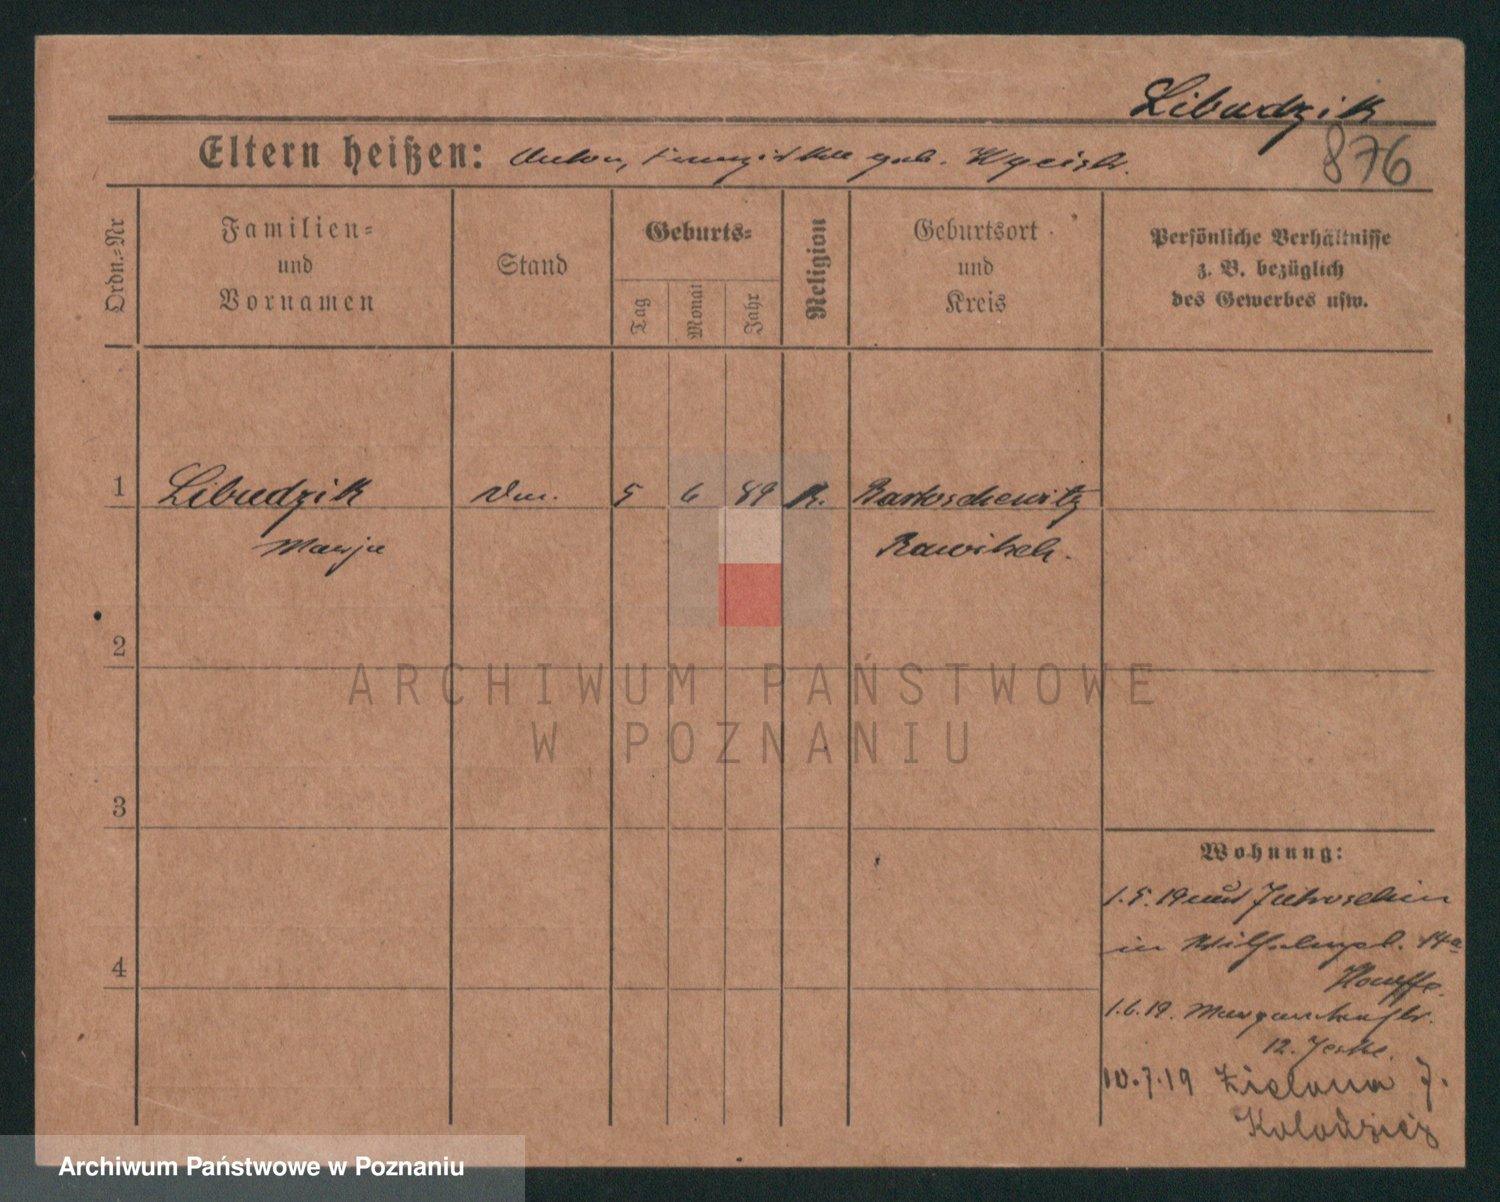 Libudzik
Eltern heißen: Anton, Franziska geb.
876
Ordn.-Nr
Familien-
und
Vornamen
Stand
Geburts-
Tag
Monat
Jahr
Religion
Geburtsort
und
Kreis
Persönliche Verhältnisse
z. B. bezüglich
des Gewerbes usw.
1 Libudzik 5 6 89 K. Bartoschewitz
Marja Rawitsch.
2
3
4
Wohnung:
1.5.19 aus Jutroschin
in Wilhelmpl. 14a
1.6.19.
12. Jeske.
10.7.19 Zielona 7.
Kolodziej
ARCHIWUM PAŃSTWOWE
W POZNANIU
Archiwum Państwowe w Poznaniu